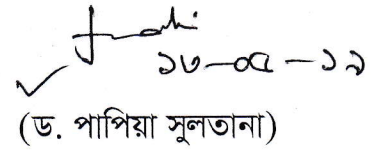 ১৩-০৫-১৯
(ড. পাপিয়া সুলতানা)